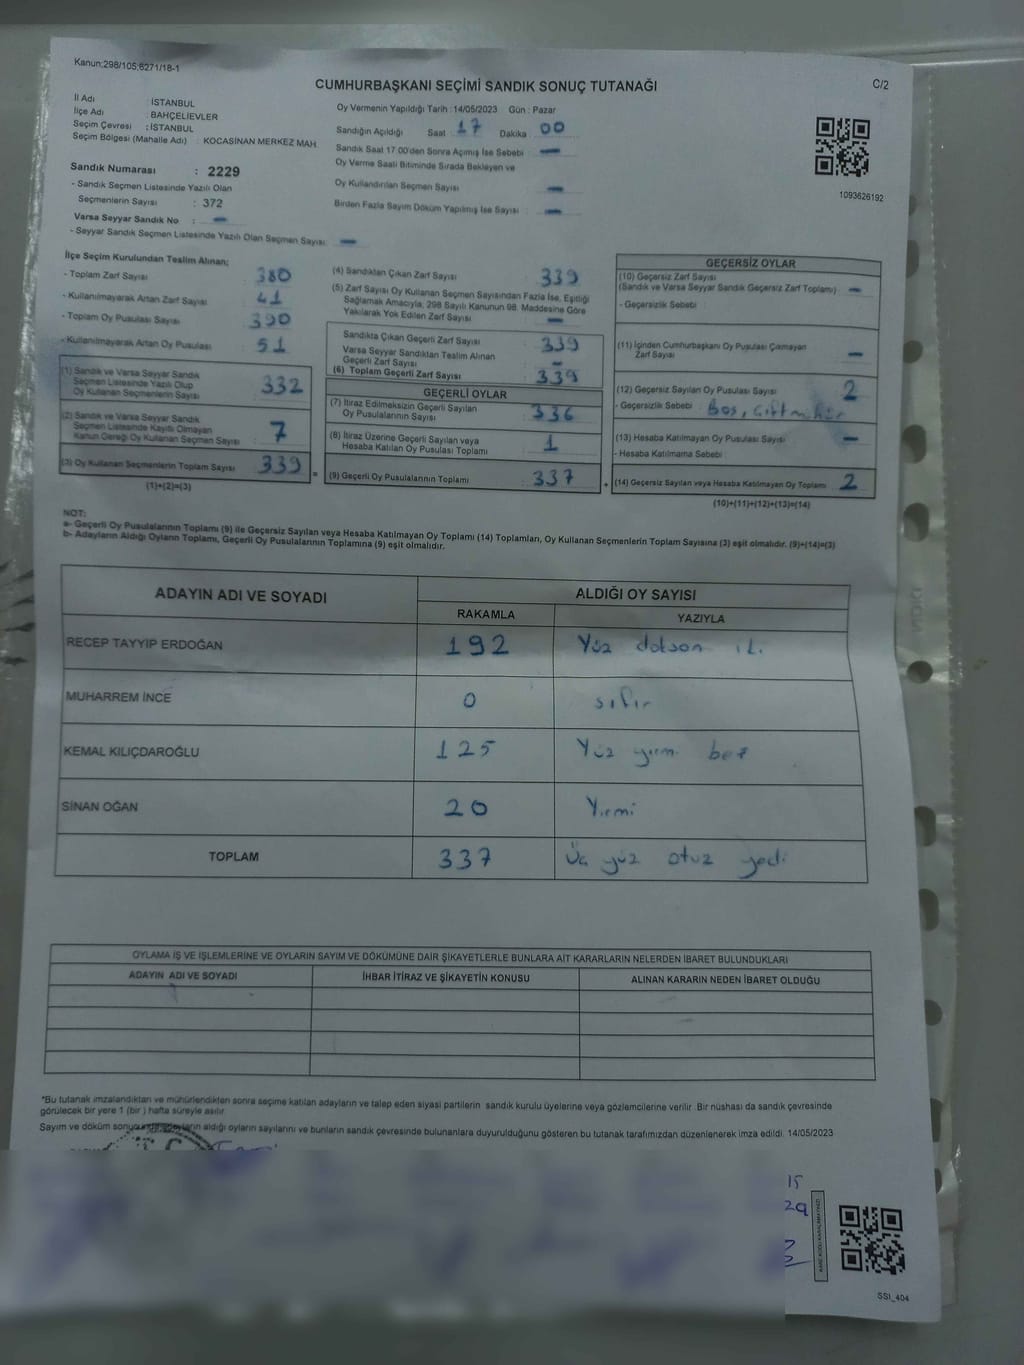 Kanun:298/105;6271/18-1
CUMHURBAŞKANI SEÇİMİ SANDIK SONUÇ TUTANAĞI
C/2
İl Adı : İSTANBUL
İlçe Adı : BAHÇELİEVLER
Seçim Çevresi : İSTANBUL
Seçim Bölgesi (Mahalle Adı) : KOCASİNAN MERKEZ MAH.
Oy Vermenin Yapıldığı Tarih : 14/05/2023 Gün : Pazar
Sandığın Açıldığı Saat : 17 Dakika : 00
Sandık Saat 17:00'den Sonra Açılmış İse Sebebi : —
Oy Verme Saati Bitiminde Sırada Bekleyen ve
Oy Kullandırılan Seçmen Sayısı : —
Birden Fazla Sayım Döküm Yapılmış İse Sayısı : —
1093626192
Sandık Numarası : 2229
- Sandık Seçmen Listesinde Yazılı Olan
Seçmenlerin Sayısı : 372
Varsa Seyyar Sandık No : —
- Seyyar Sandık Seçmen Listesinde Yazılı Olan Seçmen Sayısı : —
İlçe Seçim Kurulundan Teslim Alınan;
- Toplam Zarf Sayısı : 380
- Kullanılmayarak Artan Zarf Sayısı : 41
- Toplam Oy Pusulası Sayısı : 390
- Kullanılmayarak Artan Oy Pusulası : 51
(1) Sandık ve Varsa Seyyar Sandık
Seçmen Listesinde Yazılı Olup
Oy Kullanan Seçmenlerin Sayısı : 332
(2) Sandık ve Varsa Seyyar Sandık
Seçmen Listesinde Kayıtlı Olmayan
Kanun Gereği Oy Kullanan Seçmen Sayısı : 7
(3) Oy Kullanan Seçmenlerin Toplam Sayısı : 339
(1)+(2)=(3)
(4) Sandıktan Çıkan Zarf Sayısı : 339
(5) Zarf Sayısı Oy Kullanan Seçmen Sayısından Fazla İse, Eşitliği
Sağlamak Amacıyla, 298 Sayılı Kanunun 98. Maddesine Göre
Yakılarak Yok Edilen Zarf Sayısı : —
Sandıkta Çıkan Geçerli Zarf Sayısı : 339
Varsa Seyyar Sandıktan Teslim Alınan
Geçerli Zarf Sayısı : —
(6) Toplam Geçerli Zarf Sayısı : 339
GEÇERLİ OYLAR
(7) İtiraz Edilmeksizin Geçerli Sayılan
Oy Pusulalarının Sayısı : 336
(8) İtiraz Üzerine Geçerli Sayılan veya
Hesaba Katılan Oy Pusulası Toplamı : 1
= (9) Geçerli Oy Pusulalarının Toplamı : 337
GEÇERSİZ OYLAR
(10) Geçersiz Zarf Sayısı
(Sandık ve Varsa Seyyar Sandık Geçersiz Zarf Toplamı) : —
- Geçersizlik Sebebi :
(11) İçinden Cumhurbaşkanı Oy Pusulası Çıkmayan
Zarf Sayısı : —
(12) Geçersiz Sayılan Oy Pusulası Sayısı : 2
- Geçersizlik Sebebi : Boş, Çift mühür
(13) Hesaba Katılmayan Oy Pusulası Sayısı : —
- Hesaba Katılmama Sebebi :
+ (14) Geçersiz Sayılan veya Hesaba Katılmayan Oy Toplamı : 2
(10)+(11)+(12)+(13)=(14)
NOT:
a- Geçerli Oy Pusulalarının Toplamı (9) ile Geçersiz Sayılan veya Hesaba Katılmayan Oy Toplamı (14) Toplamları, Oy Kullanan Seçmenlerin Toplam Sayısına (3) eşit olmalıdır. (9)+(14)=(3)
b- Adayların Aldığı Oyların Toplamı, Geçerli Oy Pusulalarının Toplamına (9) eşit olmalıdır.
ADAYIN ADI VE SOYADI ALDIĞI OY SAYISI
RAKAMLA YAZIYLA
RECEP TAYYİP ERDOĞAN 192 Yüz doksan iki
MUHARREM İNCE 0 sıfır
KEMAL KILIÇDAROĞLU 125 Yüz yirmi beş
SİNAN OĞAN 20 Yirmi
TOPLAM 337 Üç yüz otuz yedi
OYLAMA İŞ VE İŞLEMLERİNE VE OYLARIN SAYIM VE DÖKÜMÜNE DAİR ŞİKAYETLERLE BUNLARA AİT KARARLARIN NELERDEN İBARET BULUNDUKLARI
ADAYIN ADI VE SOYADI İHBAR İTİRAZ VE ŞİKAYETİN KONUSU ALINAN KARARIN NEDEN İBARET OLDUĞU
*Bu tutanak imzalandıktan ve mühürlendikten sonra seçime katılan adayların ve talep eden siyasi partilerin sandık kurulu üyelerine veya gözlemcilerine verilir. Bir nüshası da sandık çevresinde
görülecek bir yere 1 (bir) hafta süreyle asılır.
Sayım ve döküm aldığı oyların sayılarını ve bunların sandık çevresinde bulunanlara duyurulduğunu gösteren bu tutanak tarafımızdan düzenlenerek imza edildi. 14/05/2023
T.C.
15
29
SSI_404